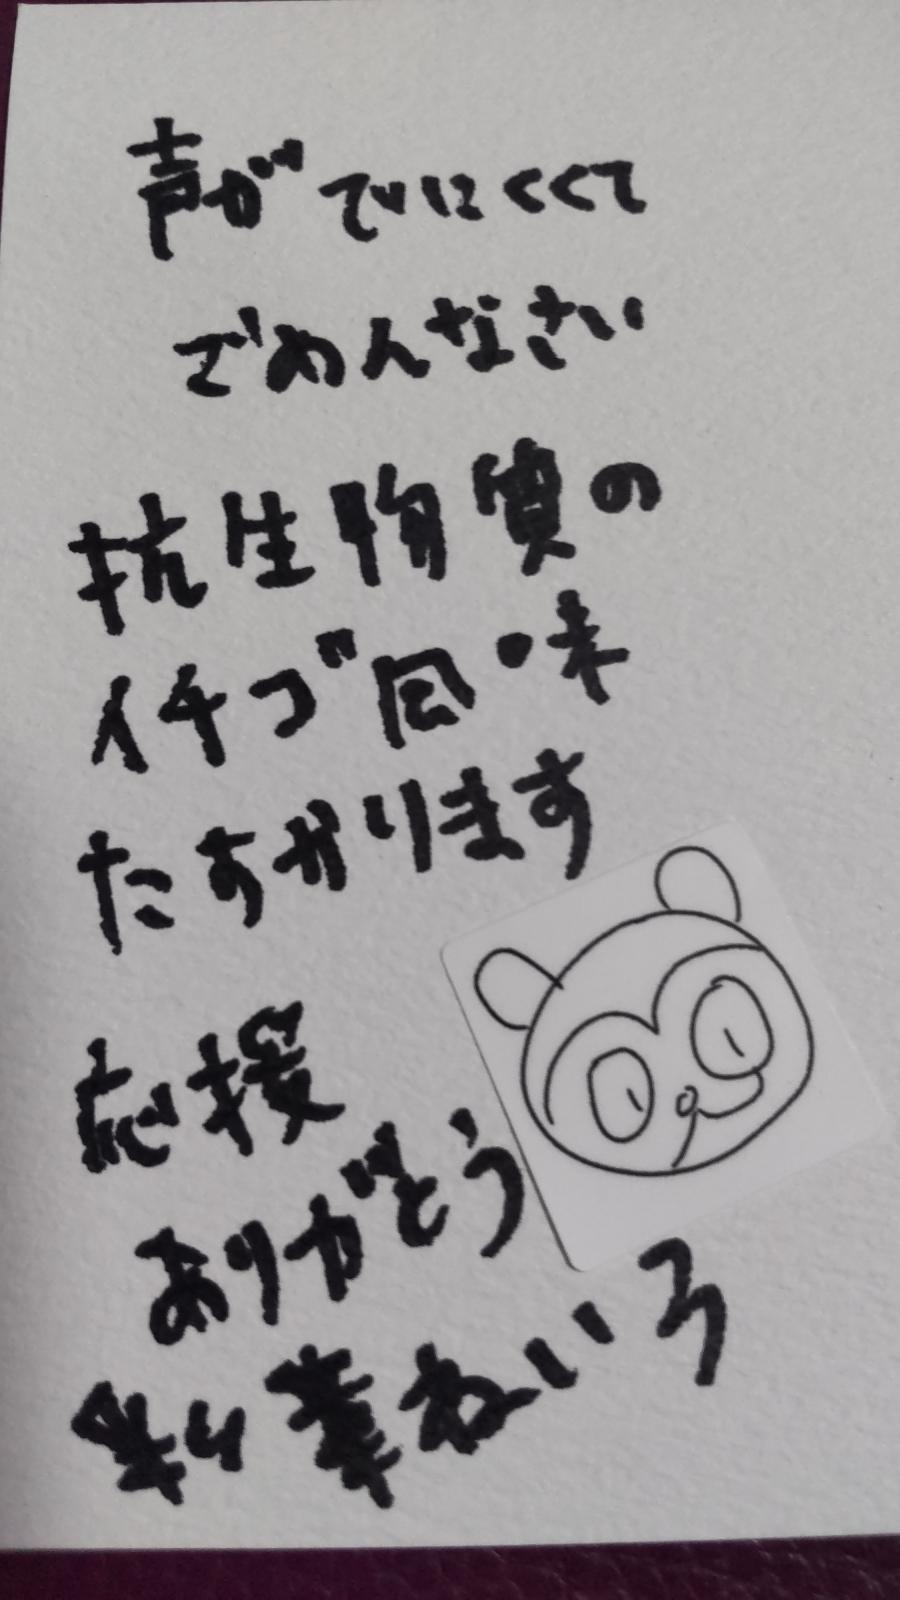 声がでにくくて
ごめんなさい
抗生物質の
イチゴ風味
たすかります
応援
ありがとう